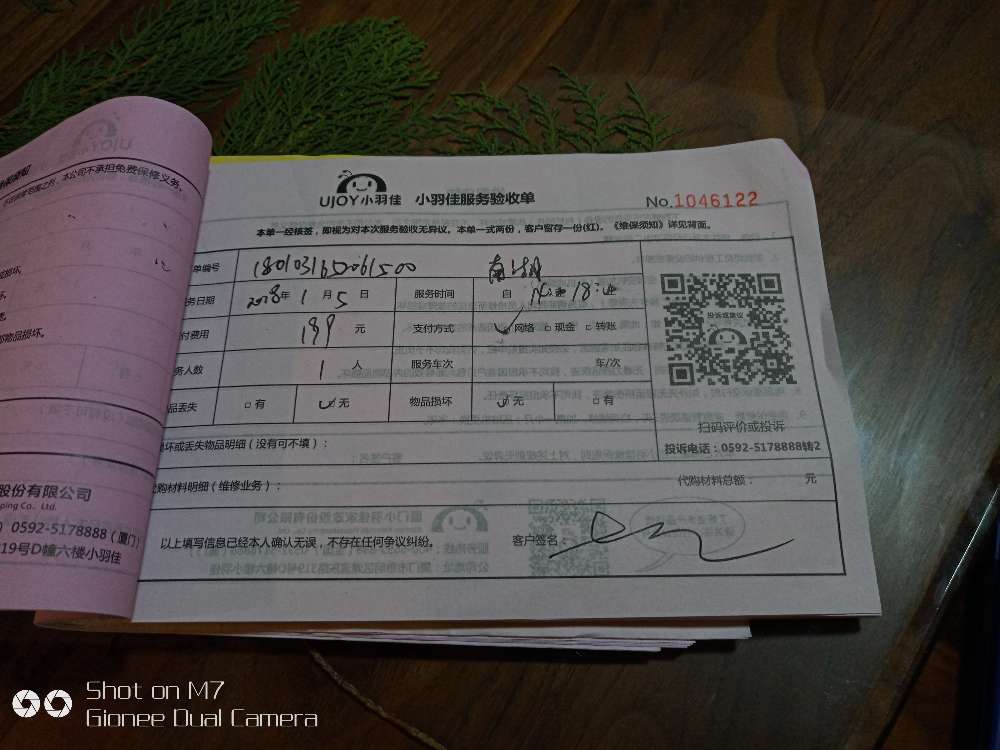 本公司不承担免费保修义务。
物品损坏.
股份有限公司
ping Co., Ltd.
0592-5178888（厦门）
19号D幢六楼小羽佳
UJOY小羽佳 小羽佳服务验收单
No.1046122
本单一经核签，即视为对本次服务验收无异议。本单一式两份，客户留存一份(红)。《维保须知》详见背面。
单编号 180103165061500
务日期 2018年 1 月 5 日 服务时间 自 14:00 18:00
付费用 199 元 支付方式 网络 □ 现金 □ 转账
务人数 1 人 服务车次 车/次
品丢失 □ 有 无 物品损坏 无 □ 有
投诉或建议
扫码评价或投诉
投诉电话：0592-5178888转2
损坏或丢失物品明细（没有可不填）：
代购材料明细（维修业务）： 代购材料总额： 元
以上填写信息已经本人确认无误，不存在任何争议纠纷。 客户签名：
Shot on M7
Gionee Dual Camera